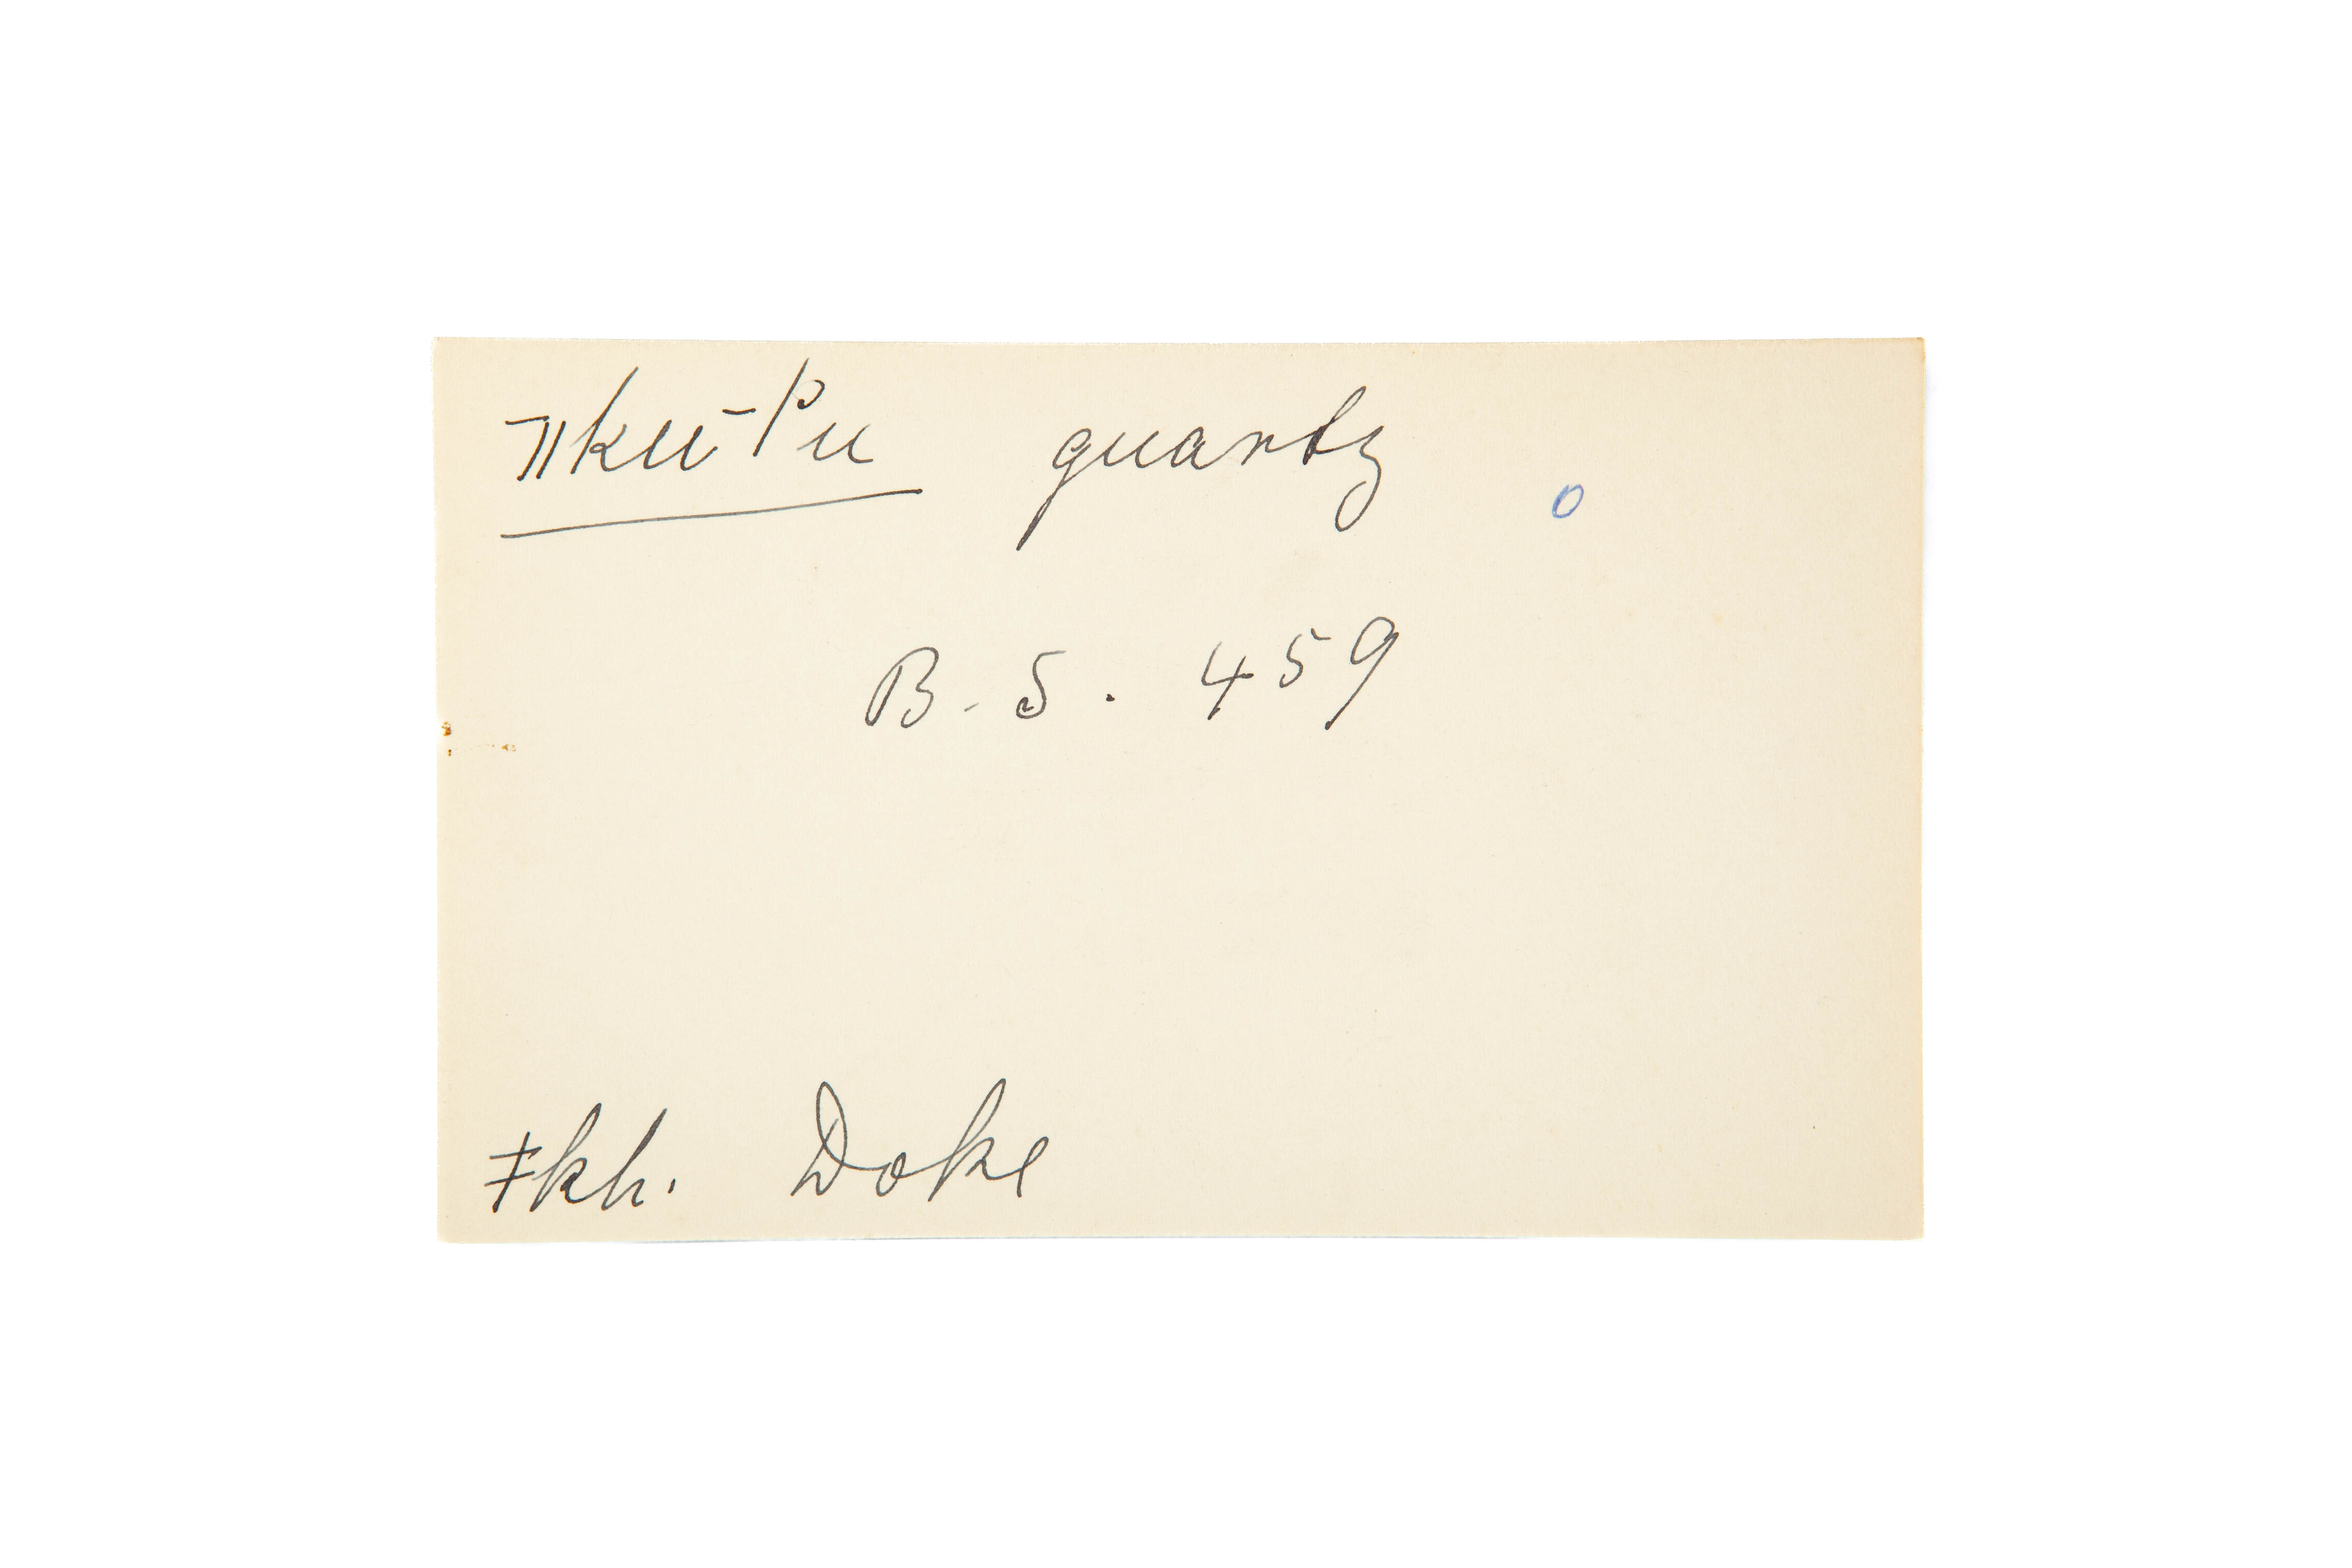 ⁻ǁku⁻ʔu quartz o
B. S. 459
ǂkh. Doke